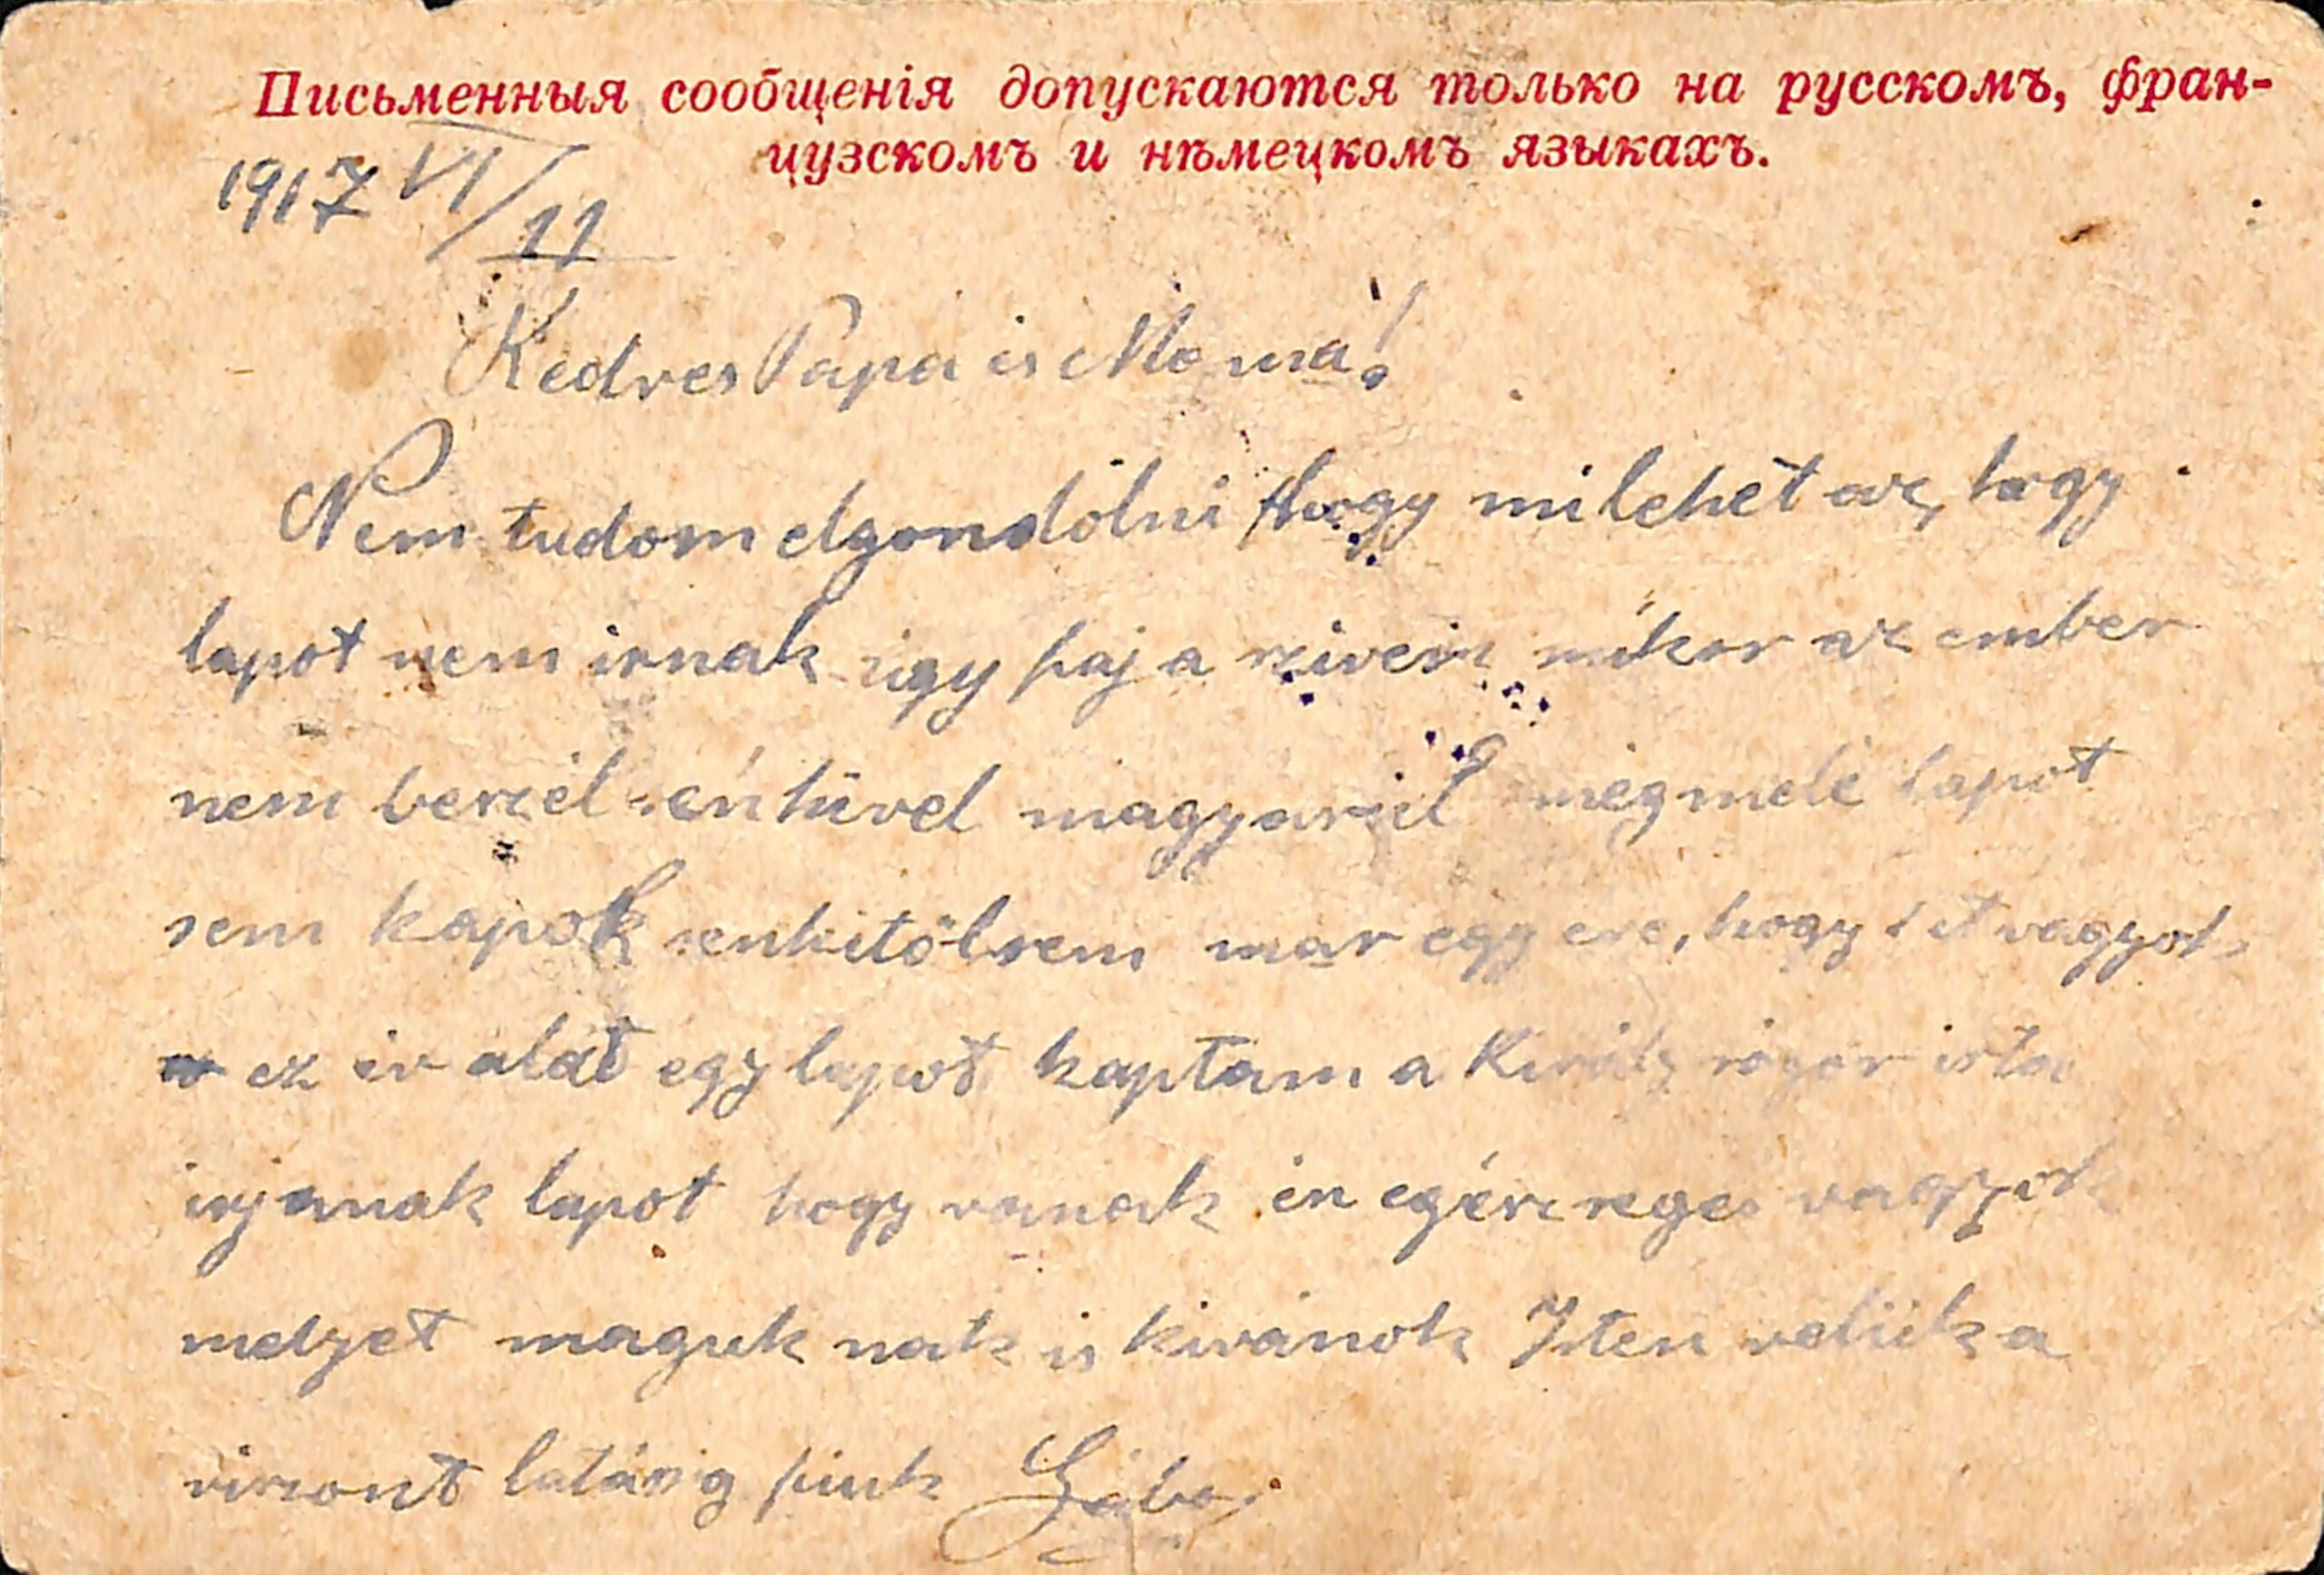 Письменныя сообщенія допускаются только на русскомъ, фран-
цузскомъ и нѣмецкомъ языкахъ.
1917 VI/11
Kedves Papa is Mama!
Nem tudom elgondolni hogy mi lehet az, hogy
lapot nem irnak ugy faj a szivem mikor az ember
nem beszél senkivel magyarul megmele lapot
sem kapok senkitölsem mar egy eve, hogy it vagyok
ez év alat egy lapot kaptam a Király irta
irjanak lapot hogy vanak én egészseges vagyok
melyet maguk nak is kivánok Isten velük a
viszont latásig fiuk Gábor